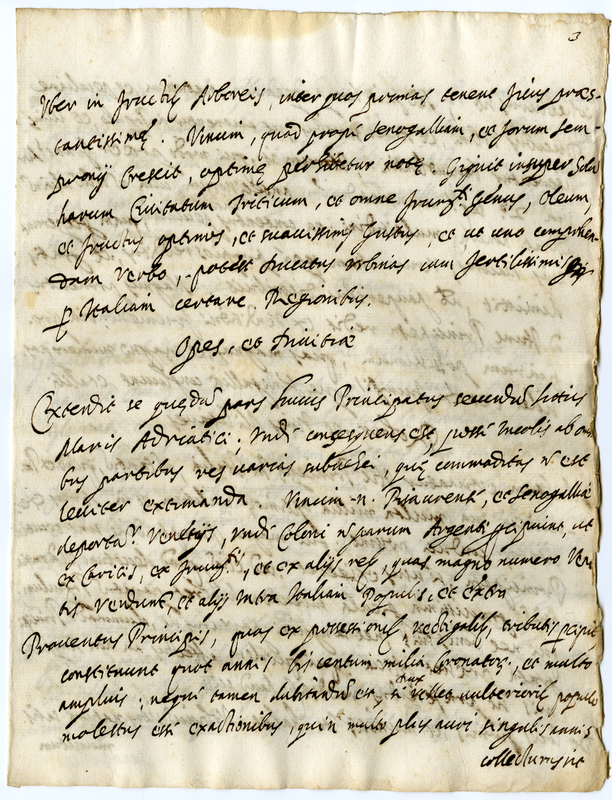 3
Uber in fructib. Arboreis, inter quos primas tenent ficus præs-
tantissimę. Vinum, quod propè Senogalliam, et forum Sem-
pronij Crescit, optimę perhibetur notę. Gignit insuper Solu
harum Civitatum Triticum, et omne frum.ti Genus, Oleum,
et fructus optimos, et suavissimi Gustus, et ut uno comprehen-
dam verbo, potest Ducatus Urbinas cum fertilissimis
p Italiam certare Regionibus.
Opes, et Divitiæ
Extendit se quędã pars huius Principatus secundũ littus
Maris Adriatici; undè consequens est, posse Incolis ab om
bus partibus res varias subvehi, quę commoditas ñ est
leviter extimanda. Vinum .n. Pisaurense, et Senogalliæ
deporta.r Venetijs, undè Coloni ñ parum Argenti pcipiunt, ut
ex Caricis, ex frum.to, et ex alijs reb., quas magno numero Vene
tis vendunt, et alijs intra Italiam Populis, et extra
Proventus Principis, quos ex possessionib., vectigalib., tributis pcipit
constituunt quot annis bis centum milia Coronator., et multo
amplius; nequè tamen dubitandũ est, si Dux vellet uulterioribus populo
molestus esse exactionibus, quin multo plus auri singulis annis
collecturus sit